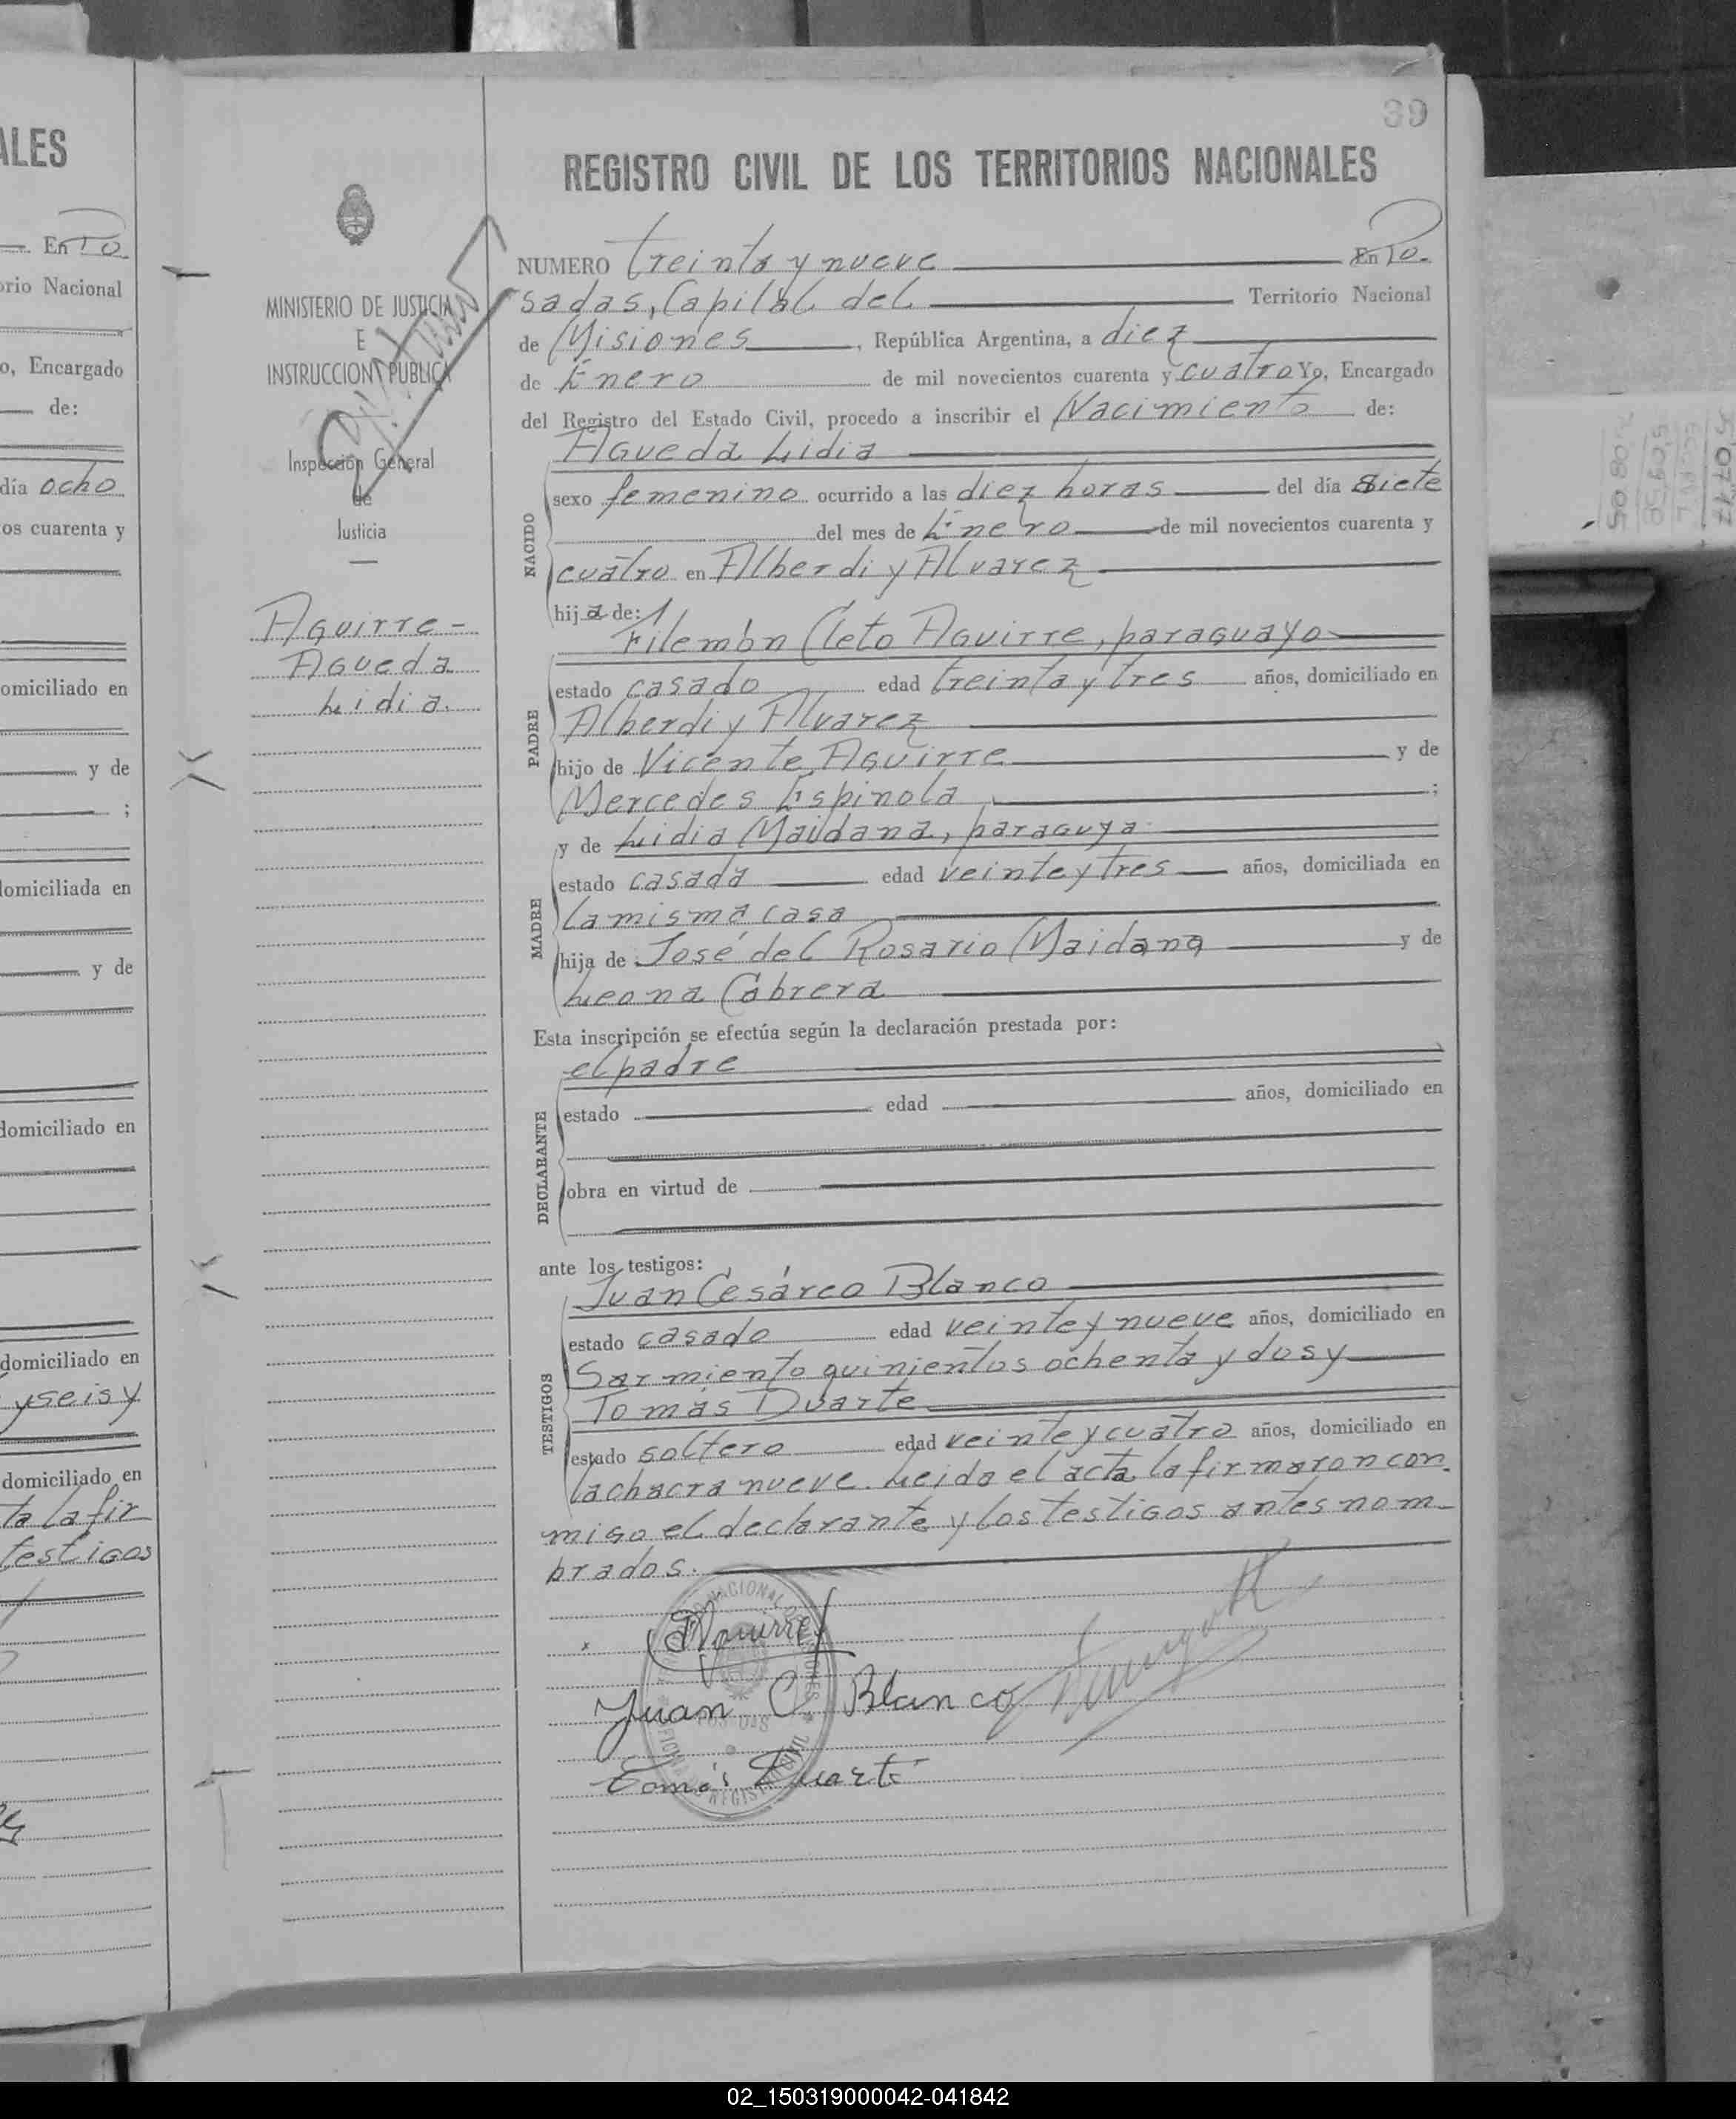 ALES
En Po
orio Nacional
o, Encargado
de:
día ocho
os cuarenta y
omiciliado en
y de
;
domiciliada en
y de
domiciliado en
domiciliado en
y seis y
domiciliado en
ta la fir
testigos
MINISTERIO DE JUSTICIA
E
INSTRUCCION PUBLICA
Inspección General
de
Justicia
Aguirre -
Agueda
Lidia.
39
REGISTRO CIVIL DE LOS TERRITORIOS NACIONALES
NUMERO treinta y nueve En Po-
sadas, Capital del Territorio Nacional
de Misiones, República Argentina, a diez
de Enero de mil novecientos cuarenta y cuatro Yo, Encargado
del Registro del Estado Civil, procedo a inscribir el Nacimiento de:
NACIDO
Agueda Lidia
sexo femenino ocurrido a las diez horas del día siete
del mes de Enero de mil novecientos cuarenta y
cuatro en Alberdi y Alvarez
hija de:
PADRE
Filemón Cleto Aguirre, paraguayo
estado casado edad treinta y tres años, domiciliado en
Alberdi y Alvarez
hijo de Vicente Aguirre y de
Mercedes Espinola ;
MADRE
y de Lidia Maidana, paraguya
estado casada edad veinte y tres años, domiciliada en
la misma casa
hija de José del Rosario Maidana y de
Leona Cabrera
Esta inscripción se efectúa según la declaración prestada por:
DECLARANTE
el padre
estado edad años, domiciliado en
obra en virtud de
ante los testigos:
TESTIGOS
Juan Cesáreo Blanco
estado casado edad veinte y nueve años, domiciliado en
Sarmiento quinientos ochenta y dos y
Tomás Duarte
estado soltero edad veinte y cuatro años, domiciliado en
la chacra nueve. Leida el acta la firmaron con-
migo el declarante y los testigos antes nom-
brados.
Aguirre
Juan C. Blanco
Tomás Duarte
02_150319000042-041842